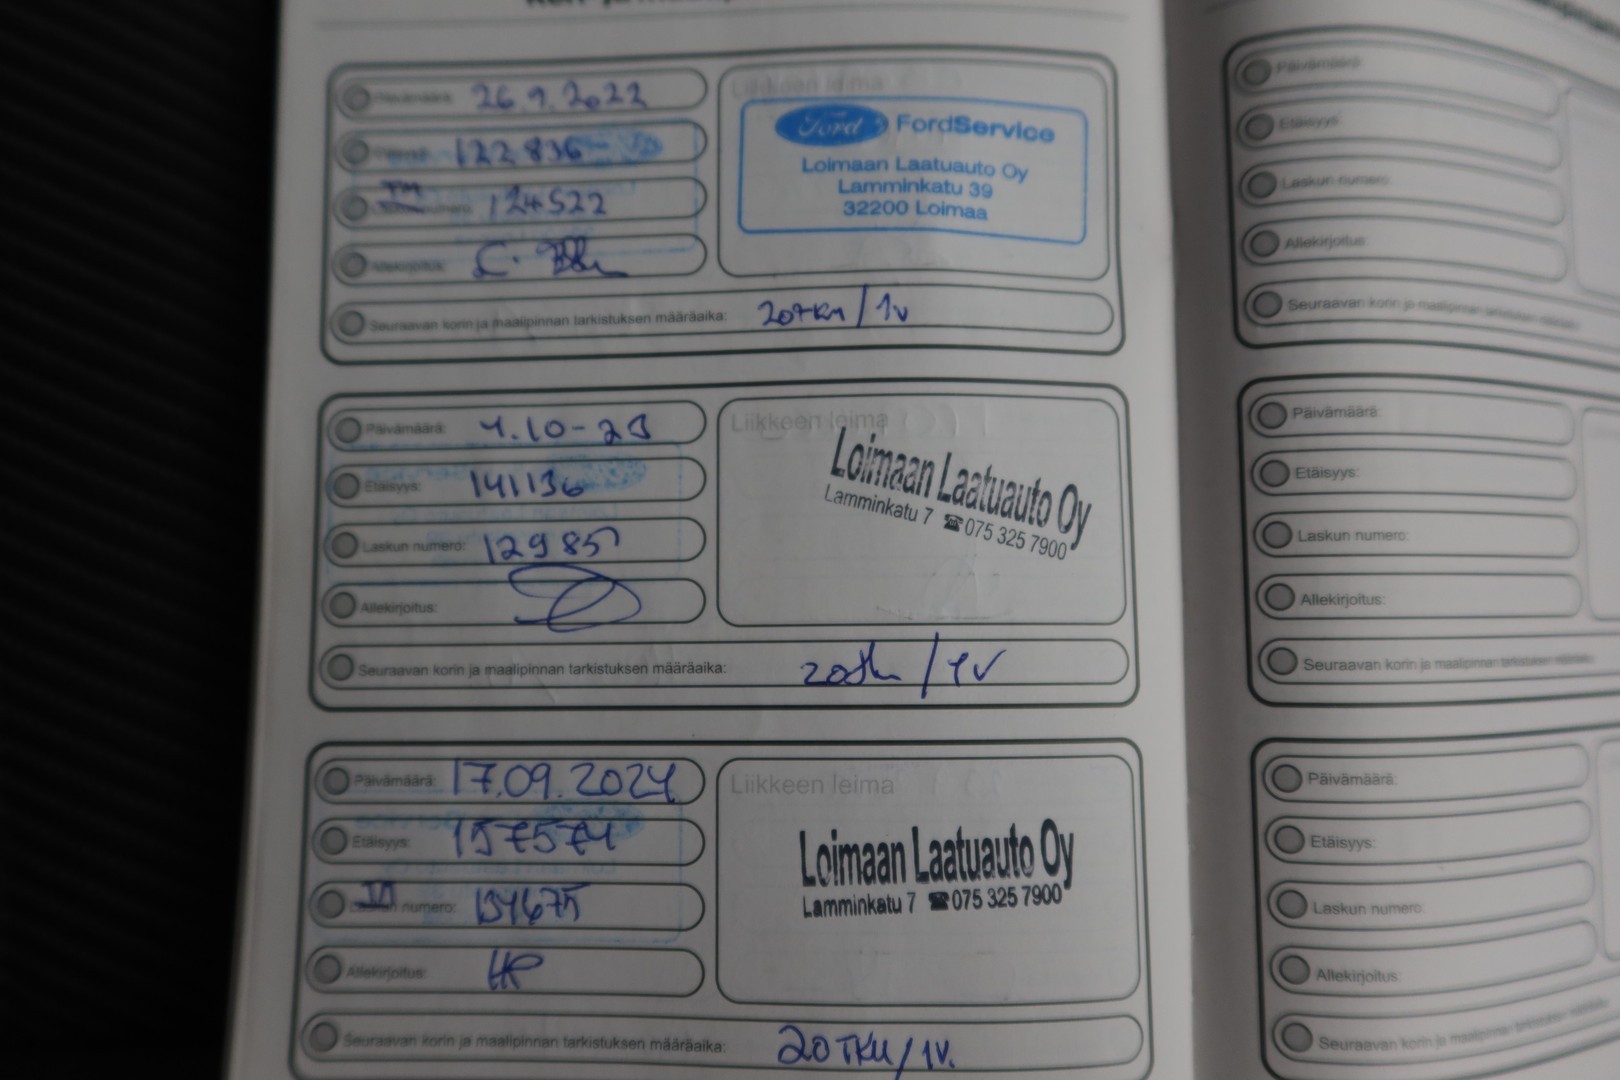 Päivämäärä: 26.9.2022
122836
TM 124522
Allekirjoitus:
Liikkeen leima
Ford FordService
Loimaan Laatuauto Oy
Lamminkatu 39
32200 Loimaa
Seuraavan korin ja maalipinnan tarkistuksen määräaika: 20TKM / 1v
Päivämäärä: 4.10-23
Etäisyys: 141136
Laskun numero: 129857
Allekirjoitus:
Liikkeen leima
Loimaan Laatuauto Oy
Lamminkatu 7 ☎ 075 325 7900
Seuraavan korin ja maalipinnan tarkistuksen määräaika: / 1V
Päivämäärä: 17.09.2024
Etäisyys: 157574
Laskun numero: 134675
Allekirjoitus: HP
Liikkeen leima
Loimaan Laatuauto Oy
Lamminkatu 7 ☎ 075 325 7900
Seuraavan korin ja maalipinnan tarkistuksen määräaika: 20TKM / 1V.
Päivämäärä:
Etäisyys:
Laskun numero:
Allekirjoitus:
Seuraavan korin ja maalipinnan tarkistuksen
Päivämäärä:
Etäisyys:
Laskun numero:
Allekirjoitus:
Seuraavan korin ja maalipinnan tarkistuksen
Päivämäärä:
Etäisyys:
Laskun numero:
Allekirjoitus:
Seuraavan korin ja maalipinnan tarkistuksen